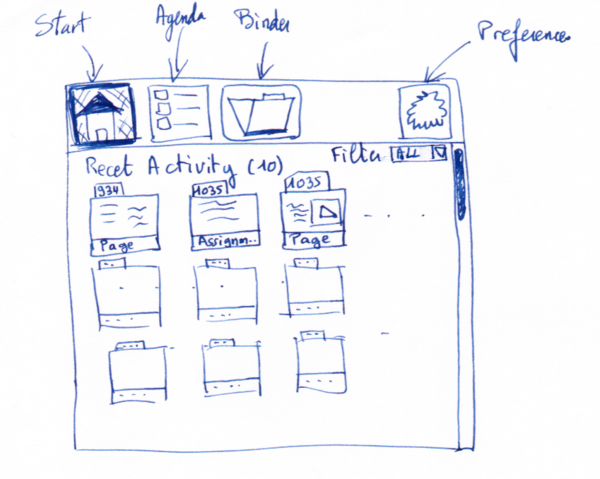 Start Agenda Binder Preferences
Recet Activity (10) Filter ALL
934 1035 1035
Page Assignm.. Page